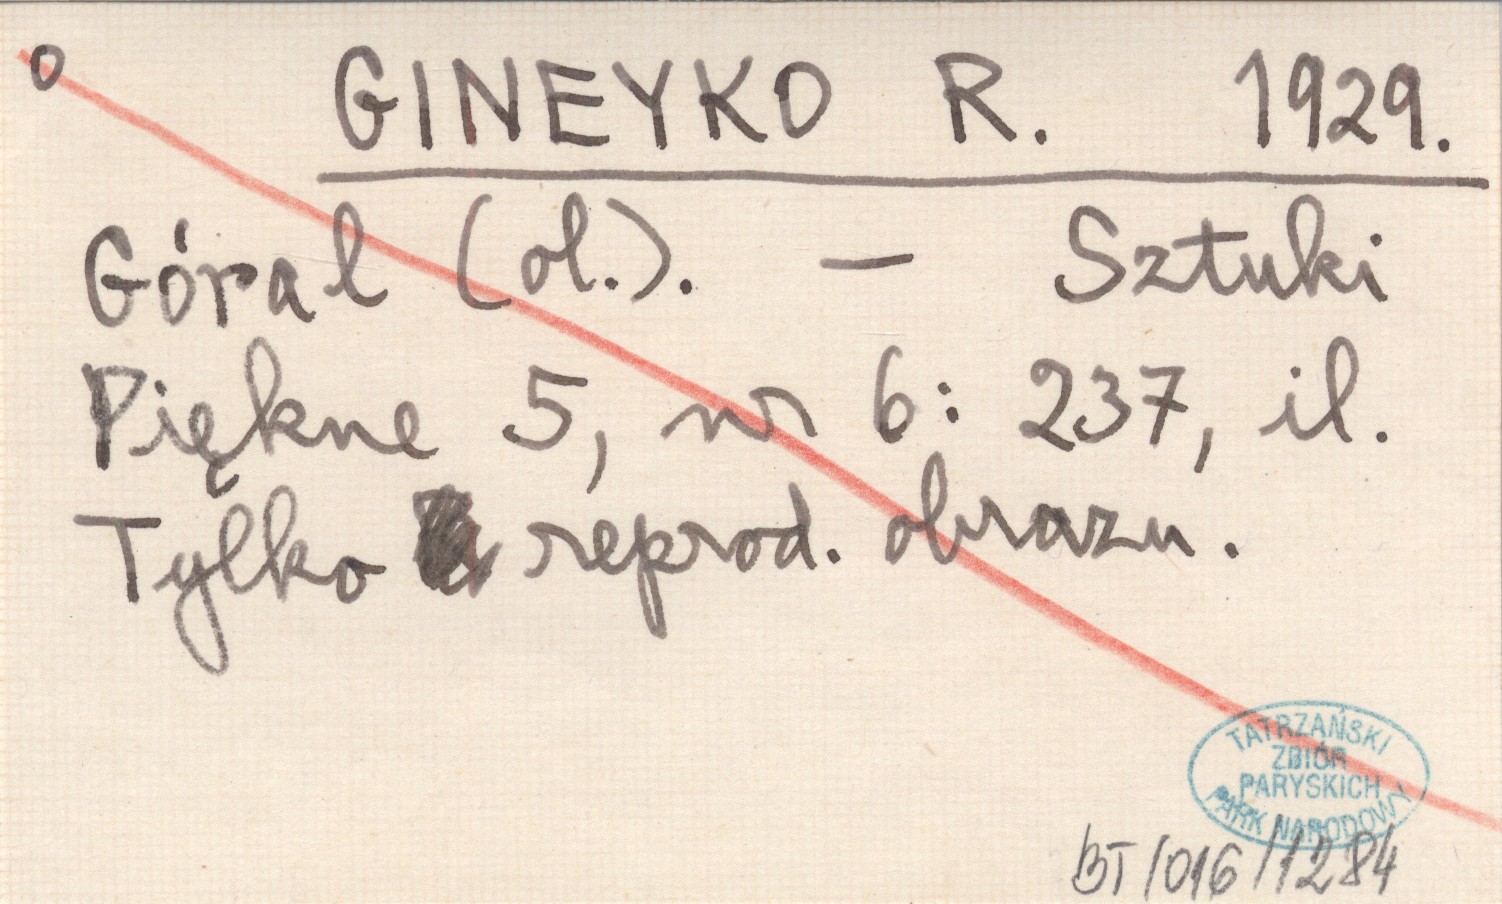 o GINEYKO R. 1929.
Góral (ol.). — Sztuki
Piękne 5, nr 6: 237, il.
Tylko reprod. obrazu.
TATRZAŃSKI
ZBIÓR
PARYSKICH
PARK NARODOWY
BT/016/1284